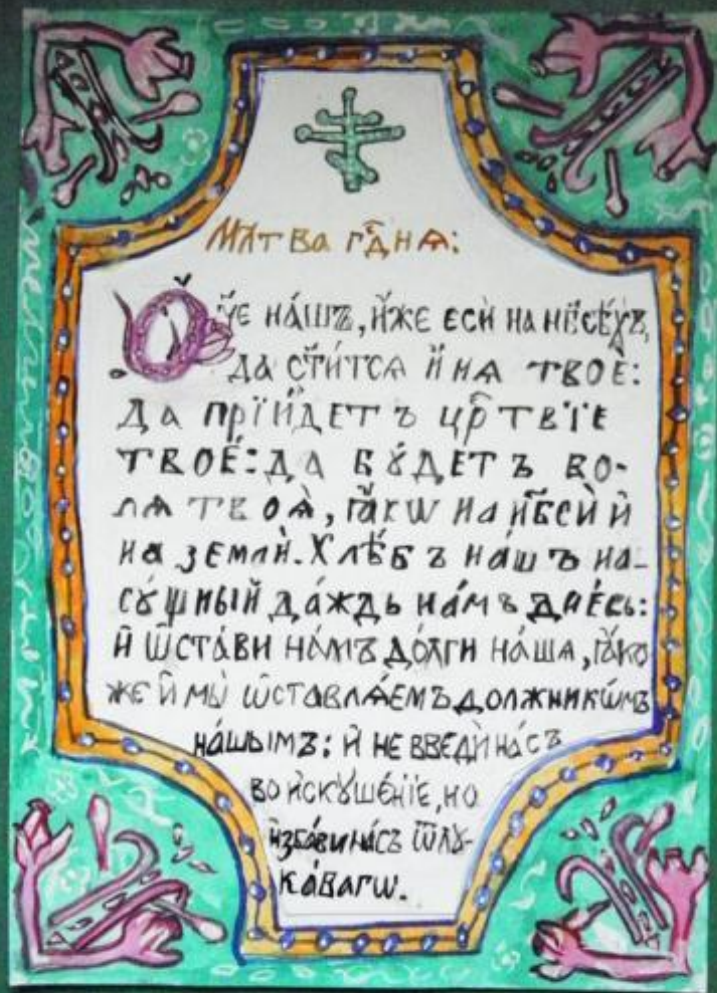 Мл҃тва гдⷭ҇нѧ:
Ѻ҆́ч҃е на́шъ, и҆́же є҆сѝ на нб҃сѣ́хъ,
да ст҃и́тсѧ и҆́мѧ твоѐ:
да прїи́детъ црⷭ҇твїе
твоѐ: да бꙋ́детъ во-
лѧ твоѧ̀, ꙗ҆́кѡ на нб҃сѝ и҆
на землѝ. Хлѣ́бъ на́шъ на-
сꙋ́щный да́ждь на́мъ дне́сь:
и҆ ѡ҆ста́ви на́мъ до́лги на́шѧ, ꙗ҆́ко
же и҆ мы̀ ѡ҆ставлѧ́емъ должникѡ́мъ
на́шымъ: и҆ не введѝ на́съ
во и҆скꙋше́нїе, но
и҆зба́ви на́съ ѿ лꙋ-
ка́вагѡ.